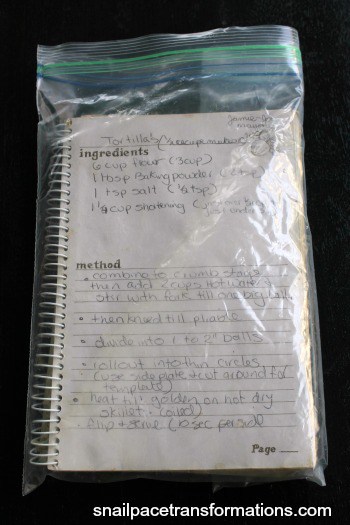 Jamie-Jo
Tortilla's
ingredients
6 cup flour (3 cup)
1 tbsp Baking powder
1 tsp salt (½ tsp)
cup shortening
method
• combine to crumb stage
then add 2 cups Hot water
stir with fork till one big ball
• then knead till pliable
• divide into 1 to 2" balls
• roll out into thin circles
(use side plate + cut around for
template)
• heat till golden on hot dry
skillet
• flip + serve (10 sec per side)
Page
snailpacetransformations.com